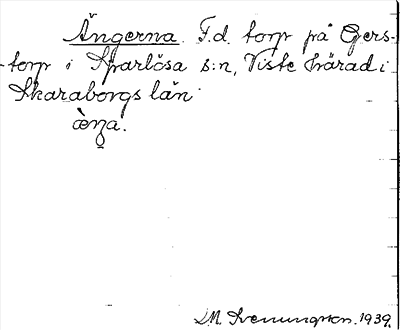 Ängerna. F.d. torp på Gers-
torp i Sparlösa s:n, Viste härad i
Skaraborgs län
æ̀ŋa.
D.M. Svenungsson. 1939.